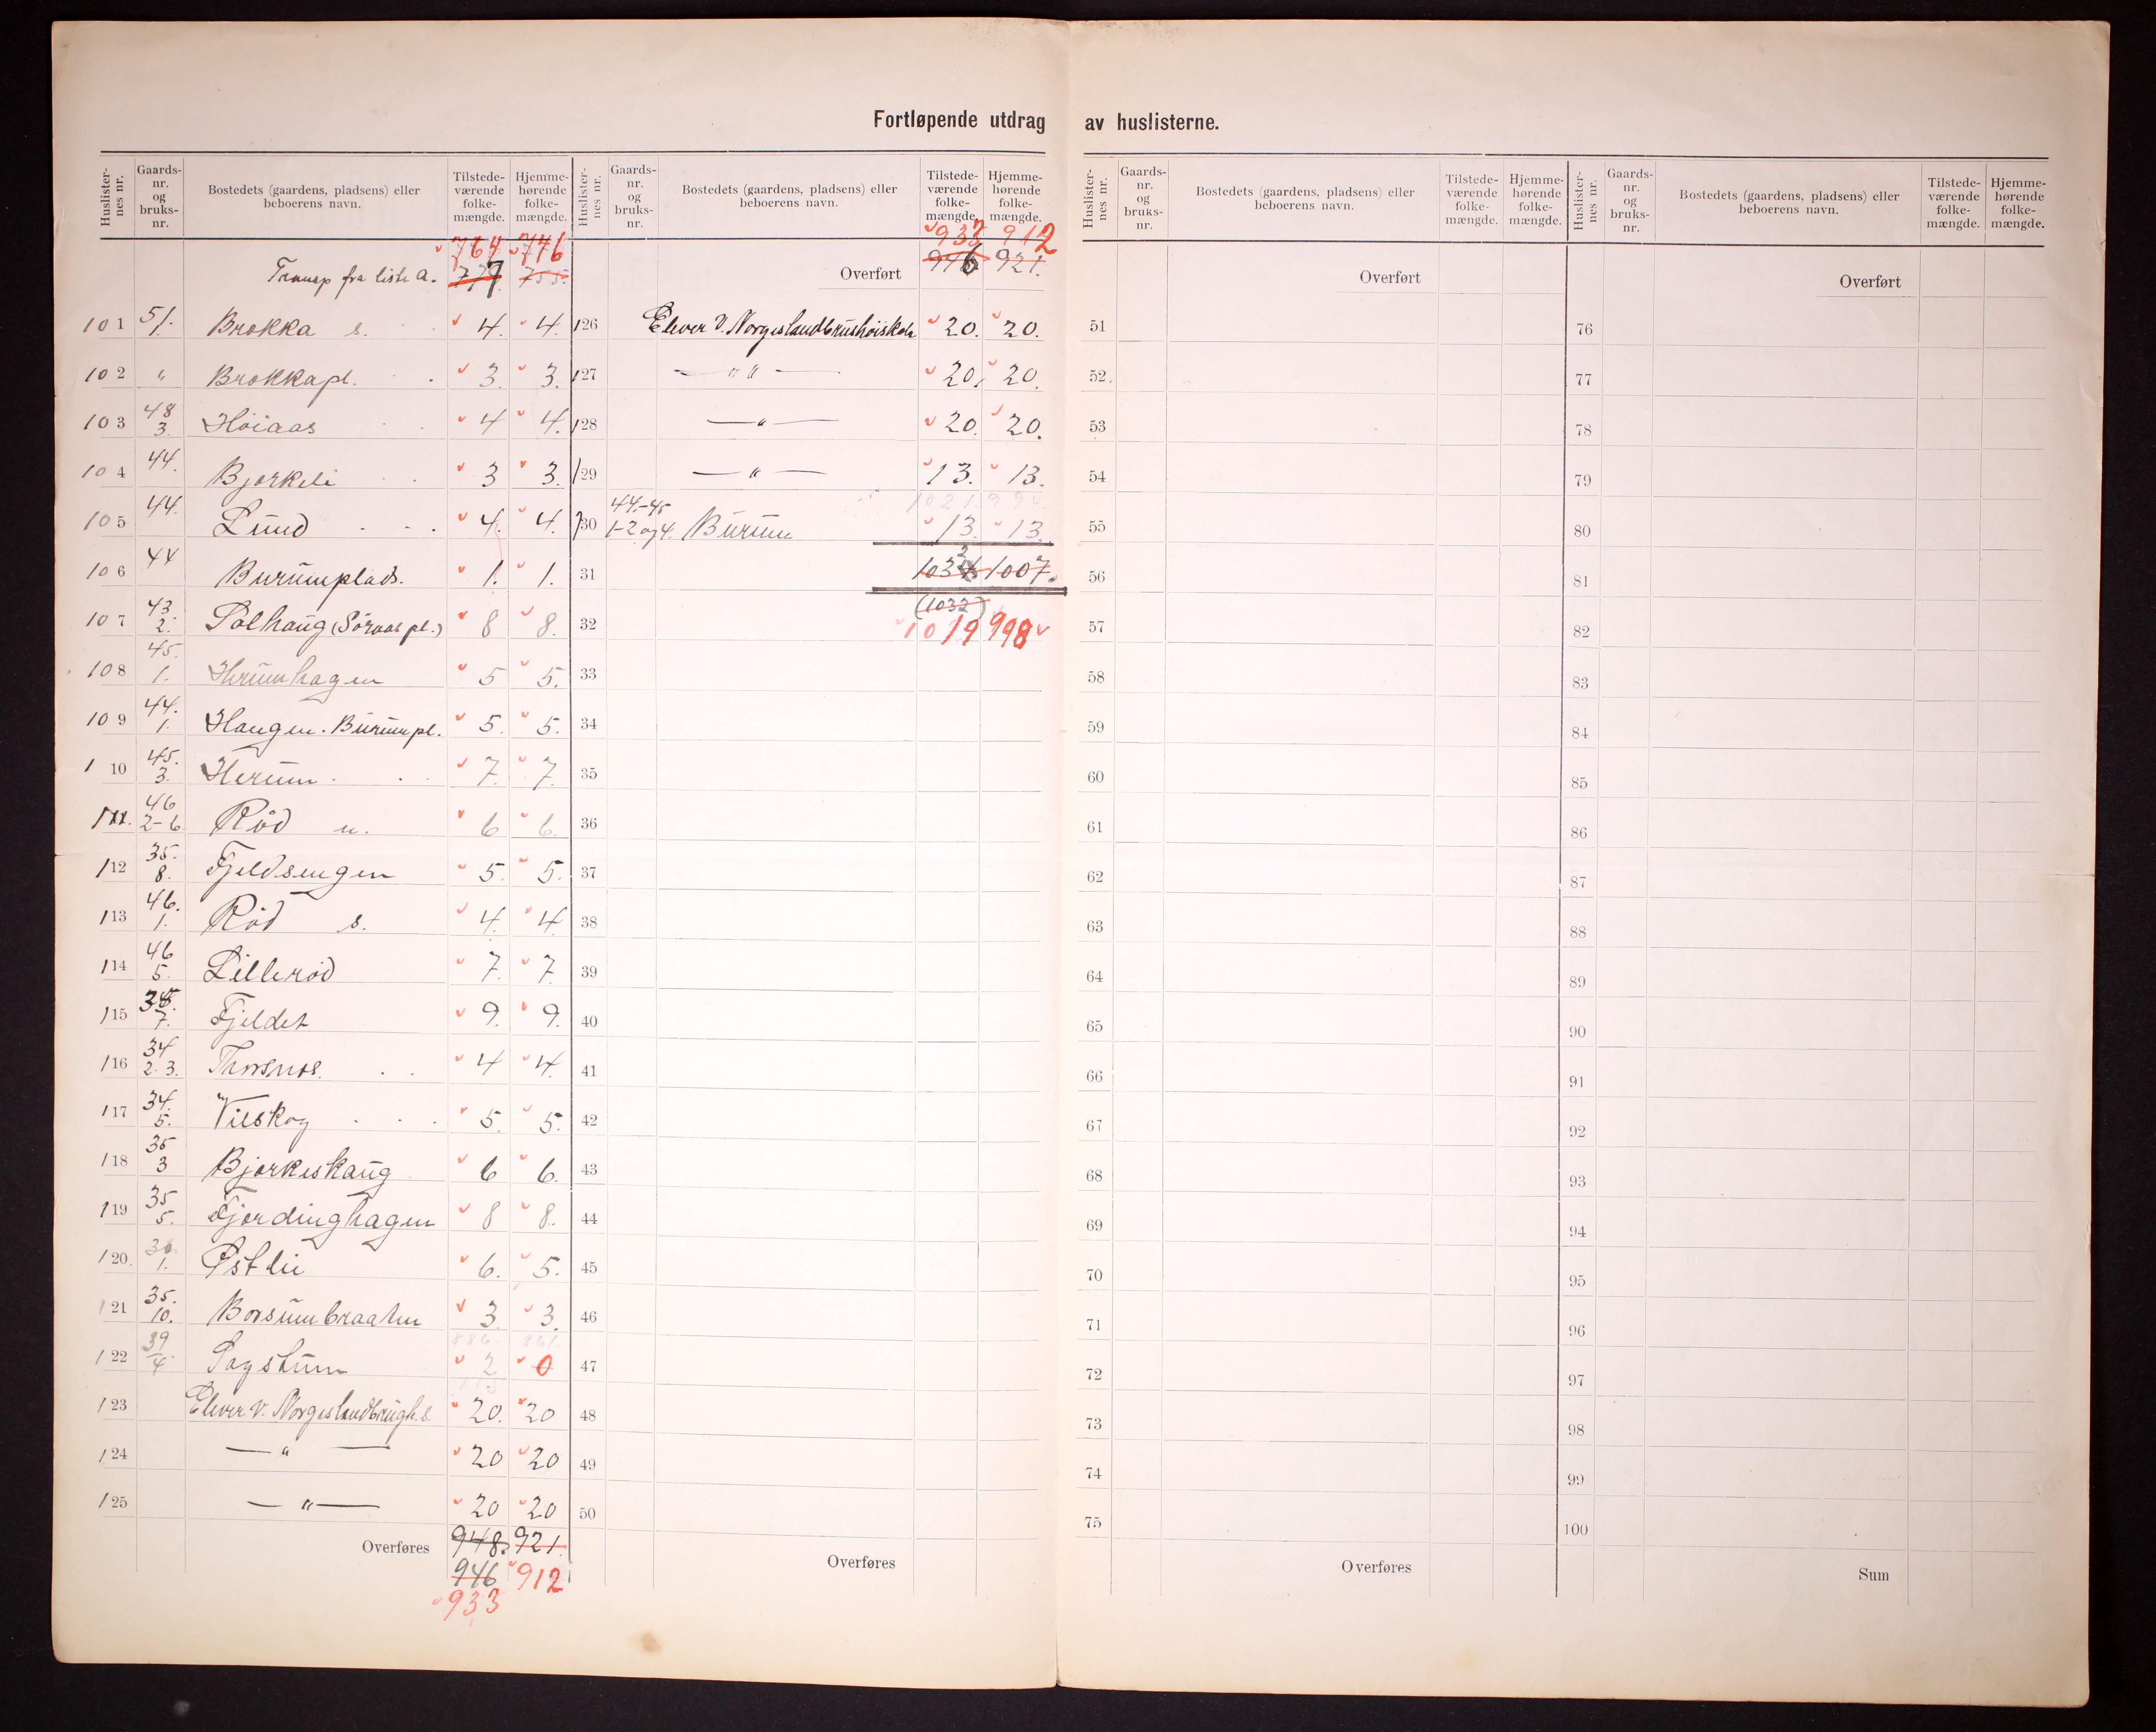 Fortløpende utdrag av huslisterne.
Huslisternes nr. Gaards-nr. og bruks-nr. Bostedets (gaardens, pladsens) eller beboerens navn. Tilstede-værende folke-mængde. Hjemme-hørende folke-mængde.
764 746
Transp fra liste A. 777 755.
101 51/1. Brokka s. 4. 4.
102 " Brokkapl. 3. 3.
103 48/3. Höiaas 4 4.
104 44. Bjerkeli 3 3.
105 44. Lund 4. 4.
106 44 Burumplads. 1. 1.
107 43./2. Solhaug (Söraas pl.) 8 8.
108 45./1. Herumhagen 5 5.
109 44./1. Haugen. Burumpl. 5. 5.
110 45./3. Herum 7. 7.
111. 46/2-6 Röd n. 6 6.
112 35./8. Fjeldsengen 5. 5.
113 46./1. Röd s. 4. 4.
114 46/5. Lilleröd 7. 7.
115 35./7. Fjeldet 9. 9.
116 34/2. 3. Thorsnos. 4 4.
117 34./5. Vilskog 5. 5.
118 35/3 Bjerkeskaug 6 6.
119 35/5. Fjerdinghagen 8 8.
120. 30./1. Östlii 6. 5.
121 35./10. Borsumbraaten 3. 3.
886. 861
122 39/4. Sagstum 2 0
123 Elever v. Norges landbrugh.s. 20. 20
124 — " — 20 20
125 — " — 20 20
Overføres 948. 921.
946 912
933
Huslisternes nr. Gaards-nr. og bruks-nr. Bostedets (gaardens, pladsens) eller beboerens navn. Tilstede-værende folke-mængde. Hjemme-hørende folke-mængde.
933 912
Overført 946 921.
126 Elever v. Norges landbrukshöiskole 20. 20.
127 — " " — 20. 20.
128 — " — 20. 20.
129 — " — 13. 13.
1021. 994
130 44.-45/1-2 og 4. Burum 13. 13.
31 1032 1007.
(1032)
32 1019 998
33
34
35
36
37
38
39
40
41
42
43
44
45
46
47
48
49
50
Overføres
Huslisternes nr. Gaards-nr. og bruks-nr. Bostedets (gaardens, pladsens) eller beboerens navn. Tilstede-værende folke-mængde. Hjemme-hørende folke-mængde.
Overført
51
52
53
54
55
56
57
58
59
60
61
62
63
64
65
66
67
68
69
70
71
72
73
74
75
Overføres
Huslisternes nr. Gaards-nr. og bruks-nr. Bostedets (gaardens, pladsens) eller beboerens navn. Tilstede-værende folke-mængde. Hjemme-hørende folke-mængde.
Overført
76
77
78
79
80
81
82
83
84
85
86
87
88
89
90
91
92
93
94
95
96
97
98
99
100
Sum